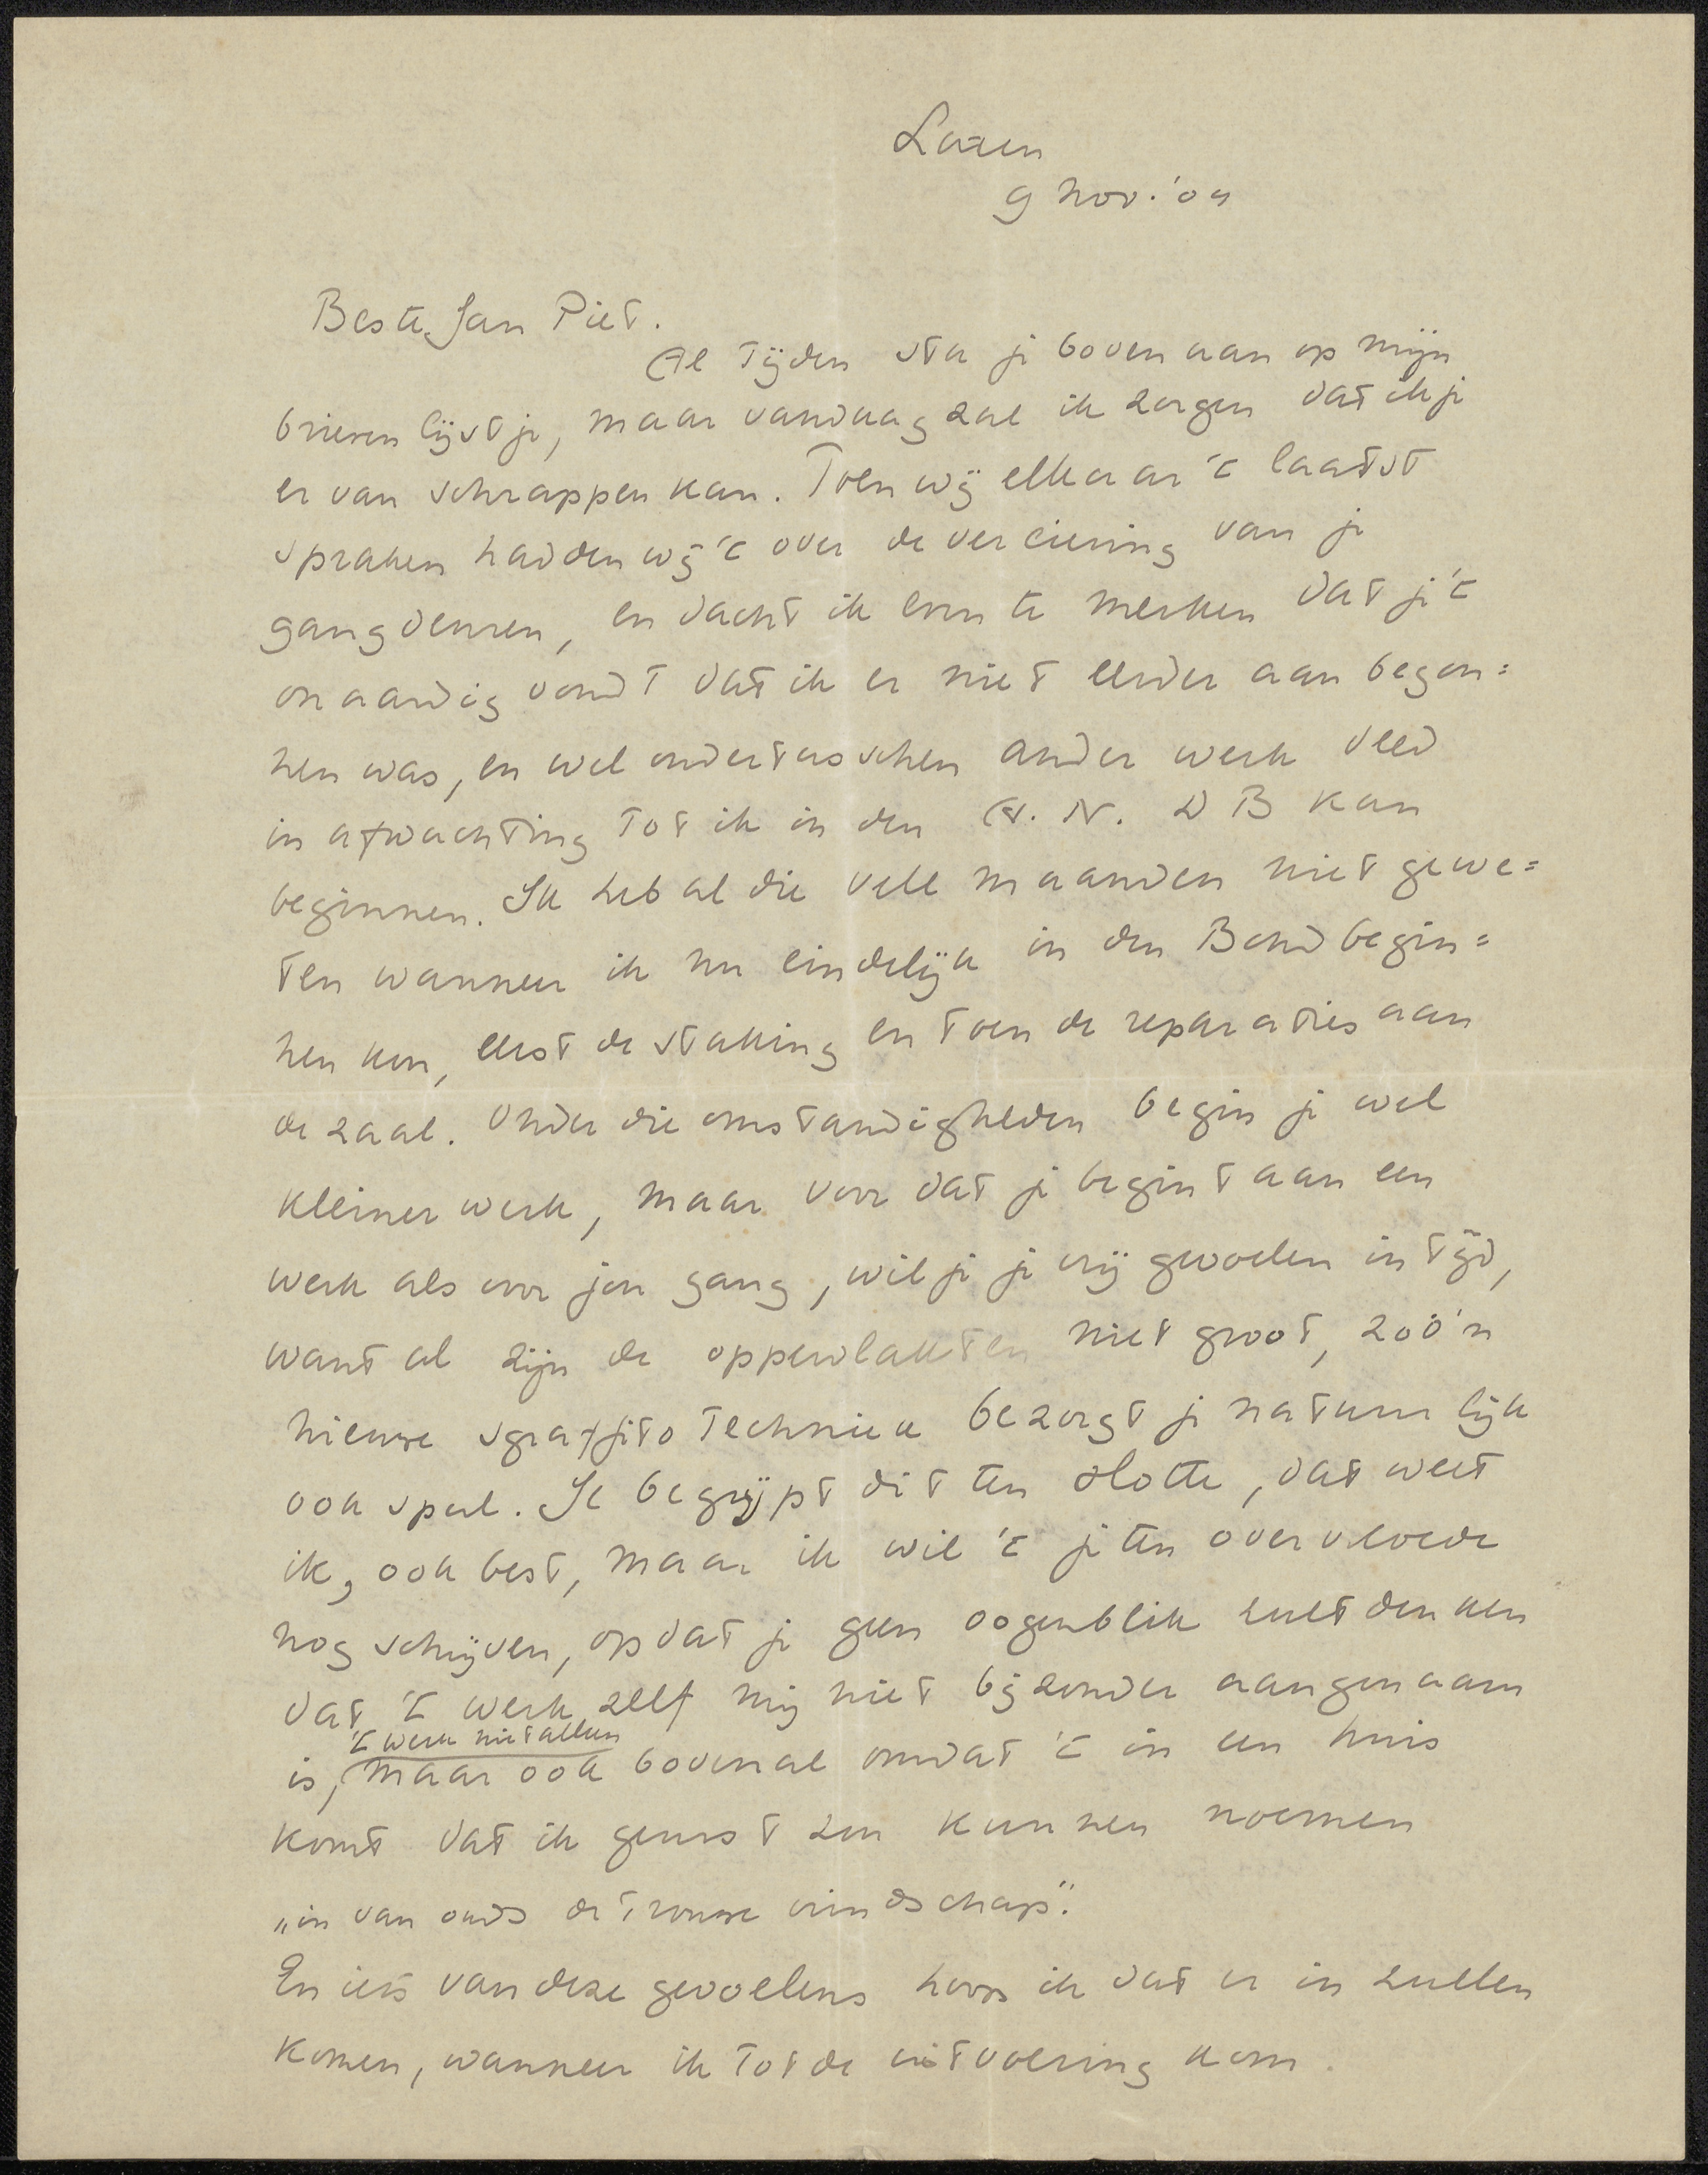 Laren
9 Nov. '04
Beste Jan Piet.
Al tijden sta je bovenaan op mijn
brievenlijstje, maar vandaag zal ik zorgen dat ik je
er van schrappen kan. Toen wij elkaar 't laatst
spraken hadden wij 't over de verciering van je
gangdeuren, en dacht ik even te merken dat je 't
onaardig vondt dat ik er niet eerder aan begon=
nen was, en wel ondertusschen ander werk deed
in afwachting tot ik in den A. N. D B kan
beginnen. Ik heb al die vele maanden niet gewe=
ten wanneer ik nu eindelijk in den Bond begin=
nen kon, eerst de staking en toen de reparaties aan
de zaal. Onder die omstandigheden begin je wel
kleiner werk, maar voor dat je begint aan een
werk als voor jou gang, wil je je vrij gevoelen in tijd,
want al zijn de oppervlakten niet groot, zoo'n
nieuwe sgraffito techniek bezorgt je natuurlijk
ook spul. Je begrijpt dit ten slotte, dat weet
ik, ook best, maar ik wil 't je ten overvloede
nog schrijven, opdat je geen oogenblik zult denken
dat 't werk zelf mij niet bijzonder aangenaam
't werk niet alleen
is, maar ook bovenal omdat 't in een huis
komt dat ik gerust zou kunnen noemen
„in van ouds de trouwe vrindschap".
En iets van deze gevoelens hoop ik dat er in zullen
komen, wanneer ik tot de uitvoering kom.